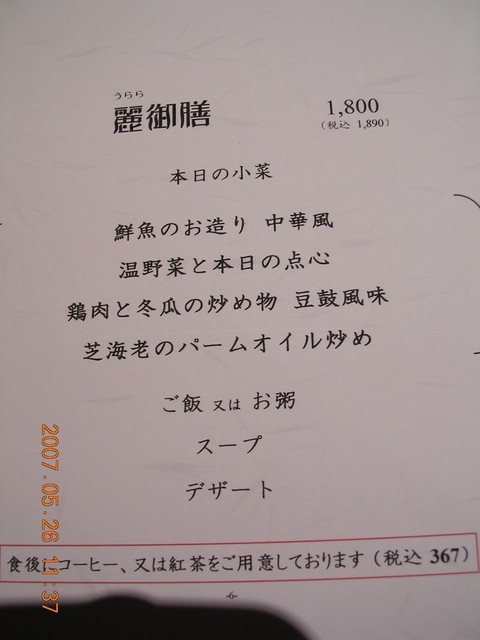 うらら
麗御膳 1,800
(税込 1,890)
本日の小菜
鮮魚のお造り 中華風
温野菜と本日の点心
鶏肉と冬瓜の炒め物 豆鼓風味
芝海老のパームオイル炒め
ご飯 又は お粥
スープ
デザート
食後にコーヒー、又は紅茶をご用意しております(税込 367)
-6-
2007.05.28 11:37